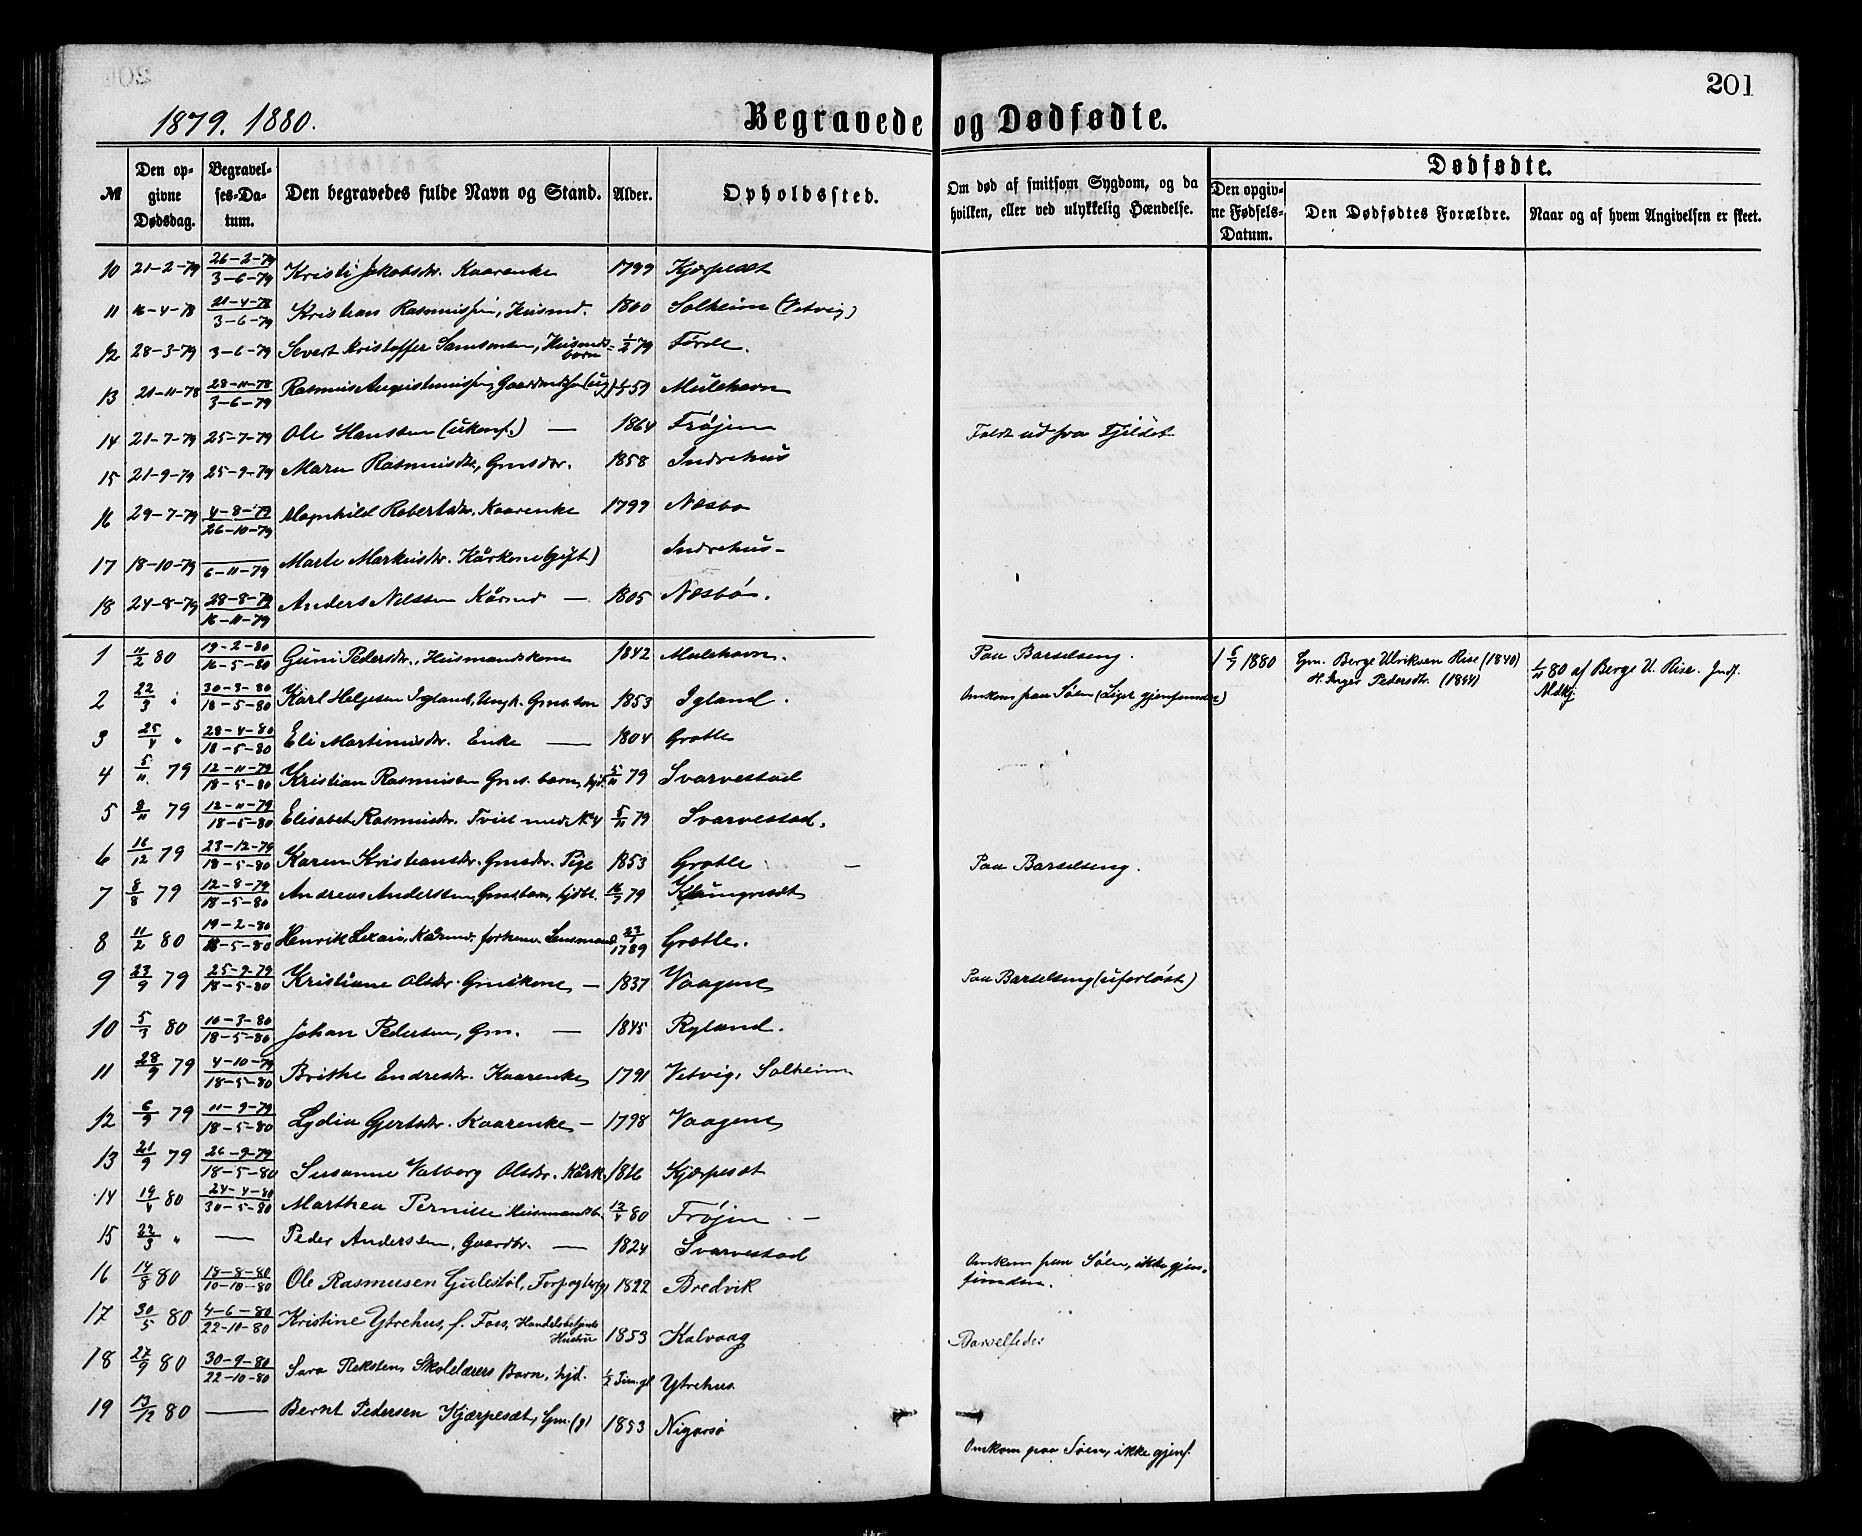 201
1879. 1880.
Begravede og Dødfødte.
№ Den opgivne Dødsdag. Begravelses-Datum. Den begravedes fulde Navn og Stand. Alder. Opholdssted. Om død af smitsom Sygdom, og da hvilken, eller ved ulykkelig Hændelse. Dødfødte. Den opgivne Fødsels-Datum. Den Dødfødtes Forældre. Naar og af hvem Angivelsen er skeet.
10 21-2-79 26-2-79 3-6-79 Kristi Jakobsdr. Kaarenke 1799 Kjærpesæt
11 16-4-78 21-4-78 3-6-79 Kristian Rasmussen, Husmd. 1800 Solheim (Vetvig)
12 28-3-79 3-6-79 Severt Kristoffer Samsonsen, Husmdsbarn 1/2 79 Førde.
13 21-11-78 28-11-78 3-6-79 Rasmus Augustinussen 59 Mulehavn
14 21-7-79 25-7-79 Ole Hanssen (ukonf.) — 1864 Frøjen Faldt ud fra Fjeldet
15 21-9-79 25-9-79 Maren Rasmusdr., Gmsdr. 1858 Indrehus
16 29-7-79 4-8-79 26-10-79 Magnhild Robertsdr. Kaarenke 1799 Næsbø
17 18-10-79 — 6-11-79 Marte Markusdr. Kårkone (gift) Indrehus
18 24-8-79 28-8-79 16-11-79 Anders Nilssen Kårmd — 1805 Næsbø.
1 11/2 80 19-2-80 16-5-80 Guni Pedersdr., Husmandskone 1842 Mulehavn. Paa Barselseng. 1 5/7 1880 Gm. Berge Ulriksen Rise (1840) H. Inger Pedersdr. (1844) 80 af Berge U. Rise. Indf.
2 22/3 " 30-3-80 18-5-80 Karl Helgesen Igland, Ungk. Gmssøn 1853 Igland. Omkom paa Søen (Liget gjenfundet)
3 25/4 " 28-4-80 18-5-80 Eli Martinusdr. Enke — 1804 Grotle
4 5/11 79 12-11-79 18-5-80 Kristian Rasmussen Gms. barn, hjd. 5/11 79 Svarvestad
5 8/11 79 12-11-79 18-5-80 Elisabet Rasmusdr. Tvil. med № 4 5/11 79 Svarvestad.
6 16/12 79 23-12-79 18-5-80 Karen Kristiansdr. Gmsdr. Pige 1853 Grotle Paa Barselseng.
7 8/8 79 12-8-79 18-5-80 Andreas Anderssen, Gmsbarn, hjdbt. 16/7 79 Klungresæt
8 11/2 80 19-2-80 18-5-80 Henrik Kårmd. forhenv. Lensmand 1789 Grotle.
9 23/9 79 25-9-79 18-5-80 Kristiane Olsdr. Gmskone — 1837 Vaagene Paa Barselseng (uforløst)
10 5/3 80 10-3-80 18-5-80 Johan Pedersen, Gm. — 1845 Rylund.
11 28/9 79 4-10-79 18-5-80 Brithe Endresdr. Kaarenke 1791 Vetvig, Solheim
12 6/9 79 11-9-79 18-5-80 Lydia Gjertsdr. Kaarenke — 1798 Vaagene
13 21/9 79 26-9-79 18-5-80 Susanne Valborg Olsdr. Kårk. 1816 Kjærpesæt
14 19/4 80 24-4-80 30-5-80 Marthea Pernille Husmandsb. 12/4 80 Frøjen —
15 22/3 " — Peder Anderssen, Gaardbr. — 1824 Svarvestad Omkom paa Søen, ikke gjenfunden.
16 14/8 80 18-8-80 10-10-80 Ole Rasmusen Gulestøl, 1822 Bredvik
17 30/5 80 4-6-80 22-10-80 Kristine Ytrehus, f. Foss, Handelsbetjents Hustru 1853 Kalvaag Barselfeber
18 27/9 80 30-9-80 22-10-80 Sara Reksten, Skolelærers Barn, hjd. 1/2 Time gl. Ytrehus
19 13/12 80 — Bernt Pedersen Kjærpesæt, Gm. (g) 1853 Nigarsø Omkom paa Søen, ikke gjenf.